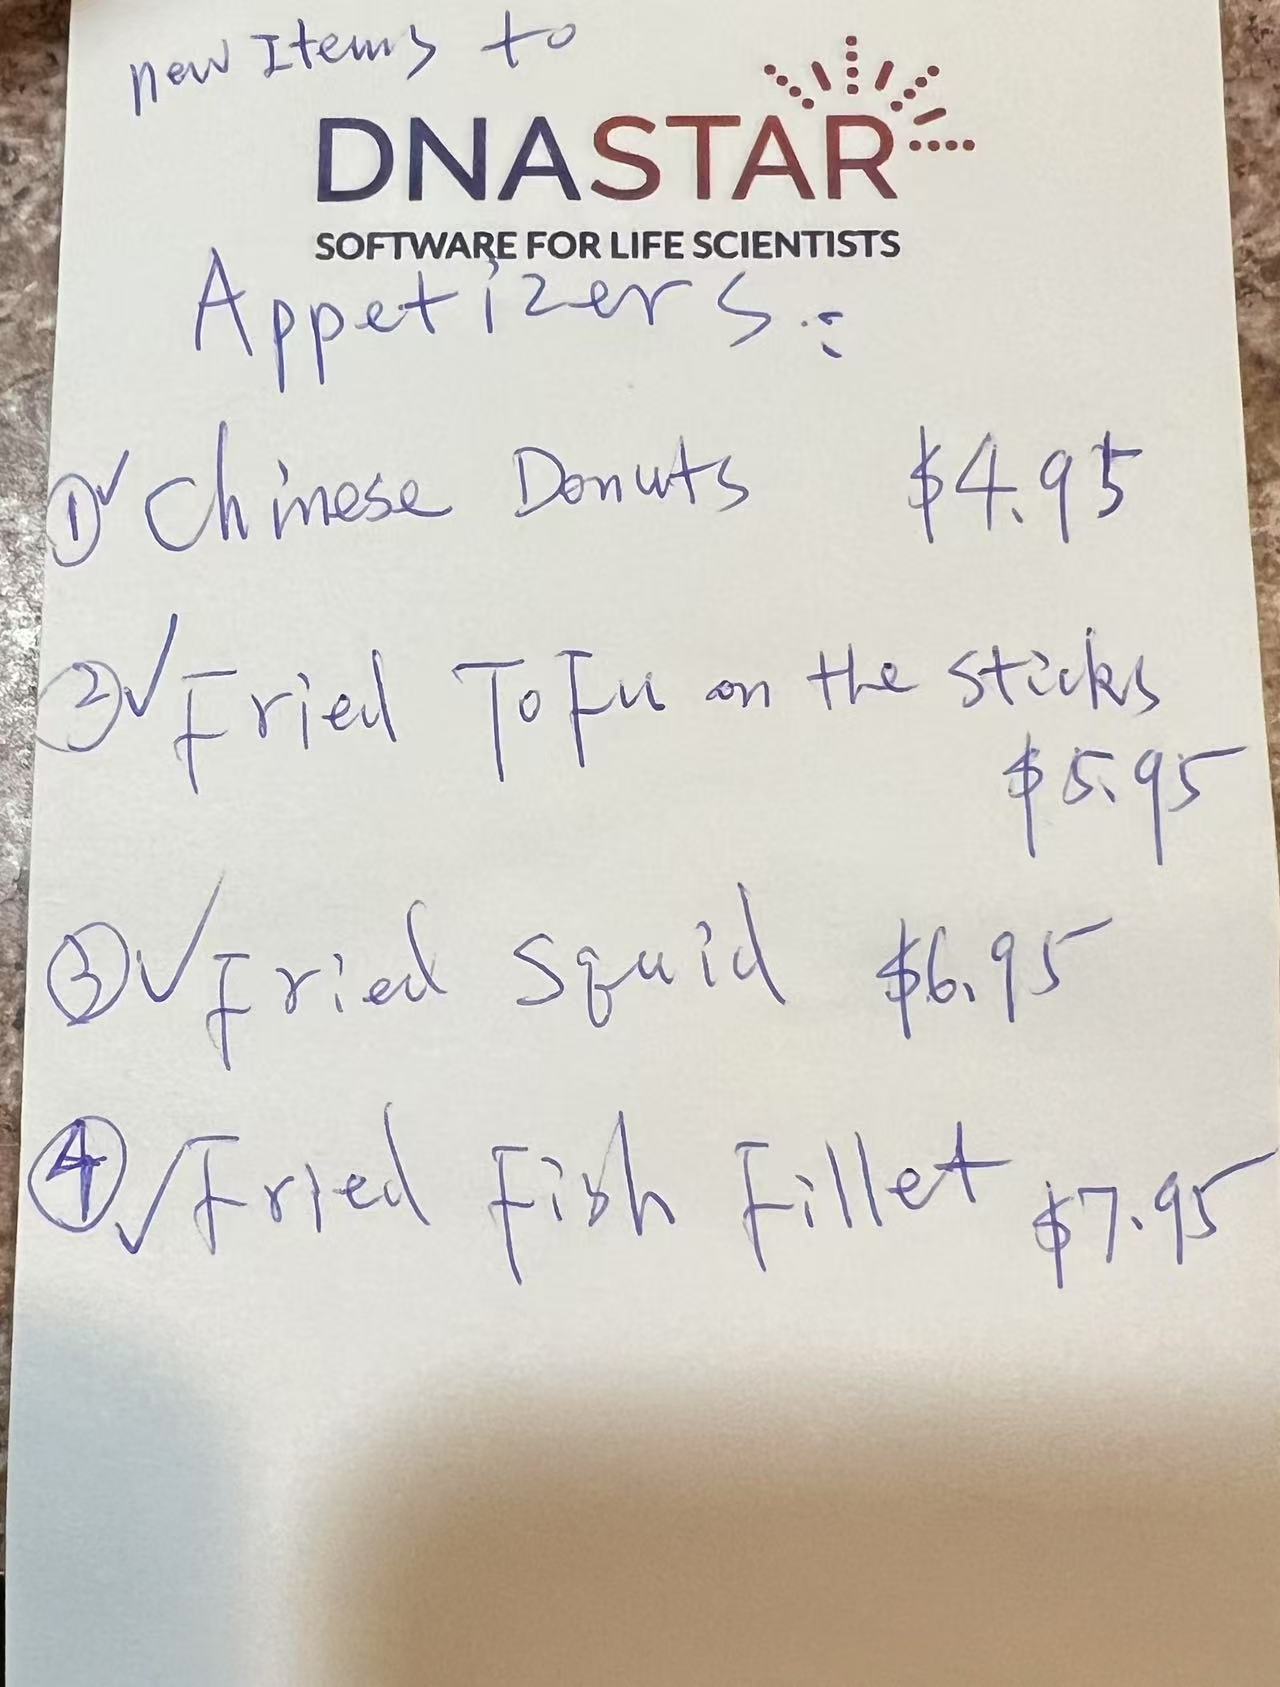 new Items to
DNASTAR
SOFTWARE FOR LIFE SCIENTISTS
Appetizers:
① ✓ Chinese Donuts $4.95
② ✓ Fried ToFu on the sticks
$5.95
③ ✓ Fried Squid $6.95
④ ✓ Fried Fish Fillet $7.95